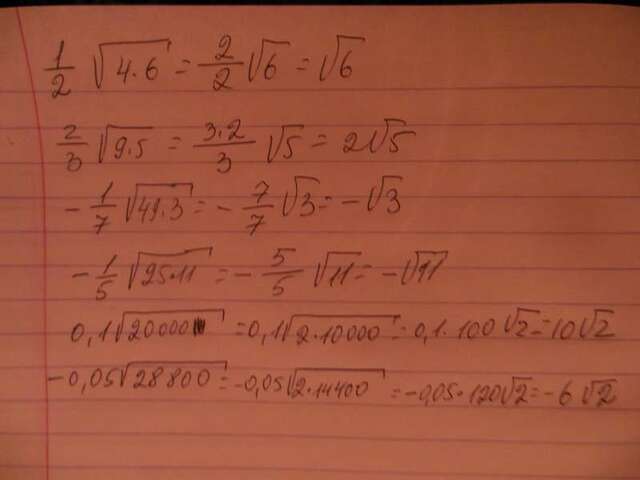 1/2 √4·6 = 2/2 √6 = √6
2/3 √9·5 = 3·2/3 √5 = 2√5
- 1/7 √49·3 = - 7/7 √3 = - √3
- 1/5 √25·11 = - 5/5 √11 = - √11
0,1√20000 = 0,1√2·10000 = 0,1·100√2 = 10√2
-0,05√28800 = -0,05√2·14400 = -0,05·120√2 = -6√2